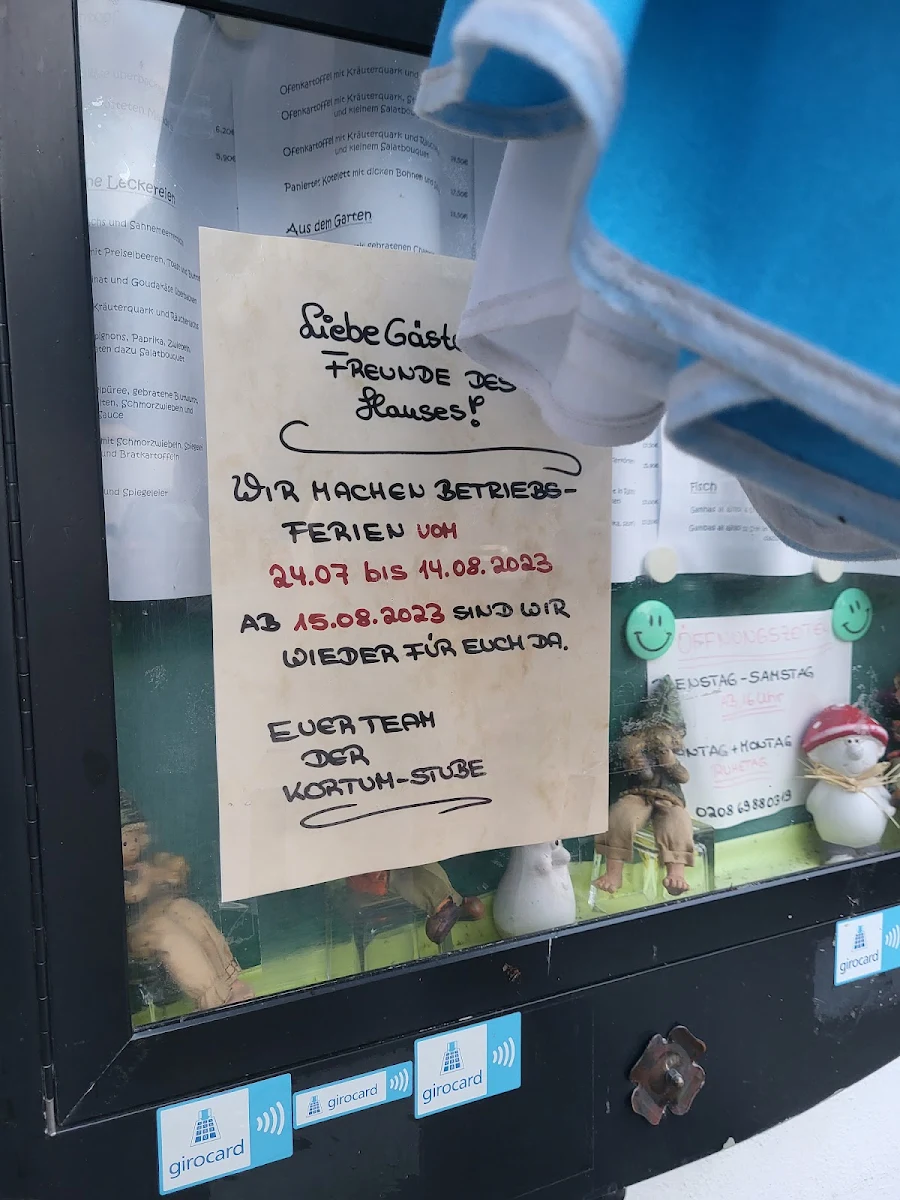 6,20€
5,90€
Leckereien
und Sahnemeerrettich
mit Preiselbeeren, Toast und
und Goudakäse überbacken
Kräuterquark und
Paprika, Zwiebeln
dazu Salatbouquet
gebratene Blutwurst,
Schmorzwiebeln und
mit Schmorzwiebeln,
und Bratkartoffeln
und Spiegeleier
Ofenkartoffel mit Kräuterquark und
Ofenkartoffel mit Kräuterquark,
und kleinem Salatbouquet
Ofenkartoffel mit Kräuterquark und
und kleinem Salatbouquet
Panierter Kotelett mit dicken Bohnen und
Aus dem Garten
gebratenen
Liebe Gäste
FREUNDE DES
Hauses!
WIR MACHEN BETRIEBS-
FERIEN VOM
24.07 bis 14.08.2023
AB 15.08.2023 SIND WIR
WIEDER FÜR EUCH DA.
EUER TEAM
DER
KORTUM-STUBE
Fisch
Gambas
Gambas
ÖFFNUNGSZEITEN
ENSTAG-SAMSTAG
AB 16 Uhr
NTAG + MONTAG
RUHETAG
0208 69880319
girocard
girocard
girocard
girocard